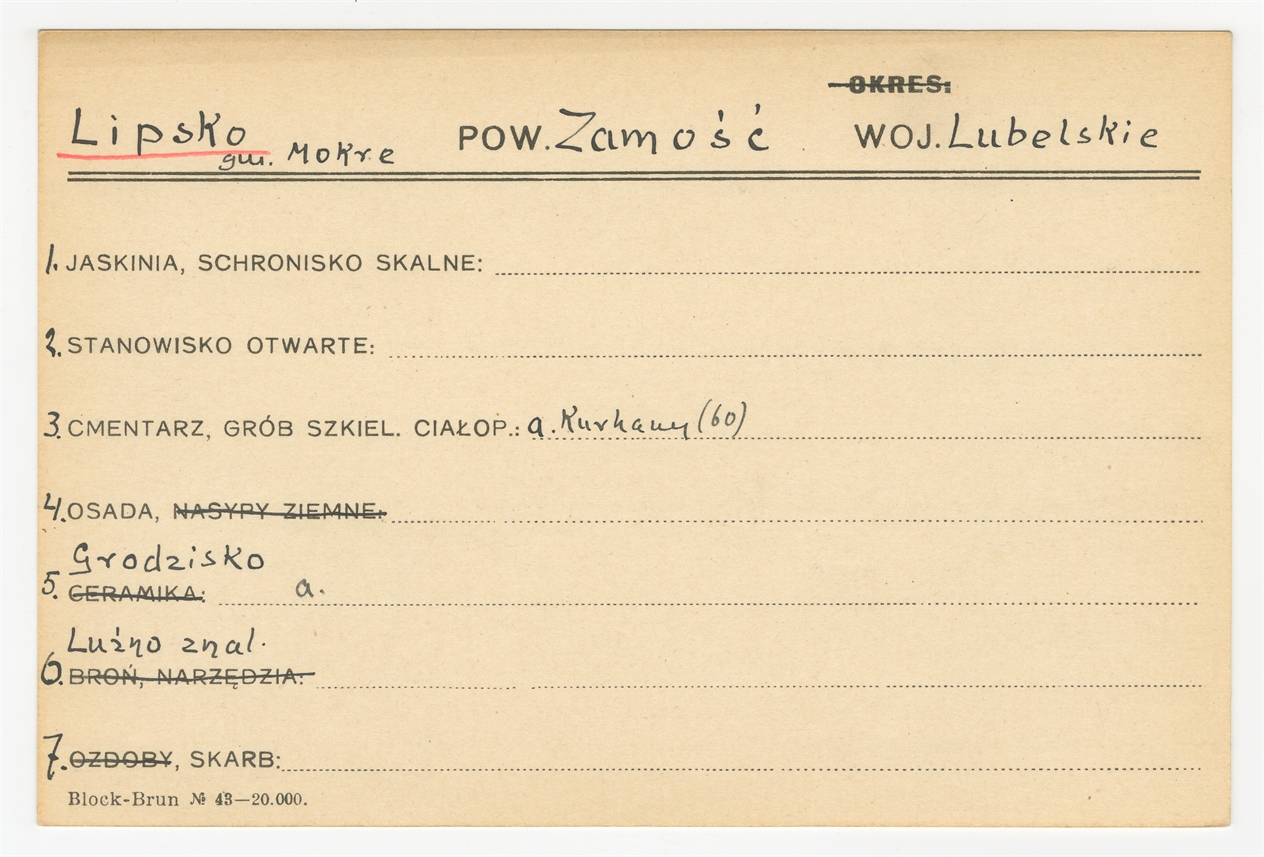 OKRES:
Lipsko gm. Mokre POW. Zamość WOJ. Lubelskie
1. JASKINIA, SCHRONISKO SKALNE:
2. STANOWISKO OTWARTE:
3. CMENTARZ, GRÓB SZKIEL. CIAŁOP.: a. Kurhany (60)
4. OSADA, NASYPY ZIEMNE:
Grodzisko
5. CERAMIKA: a.
Luźno znal.
6. BROŃ, NARZĘDZIA:
7. OZDOBY, SKARB:
Block-Brun № 43—20.000.